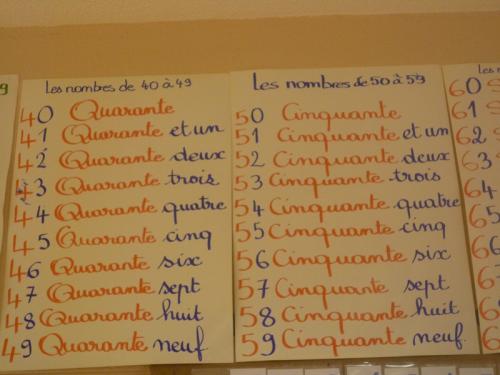 9
Les nombres de 40 à 49
40 Quarante
41 Quarante et un
42 Quarante deux
43 Quarante trois
44 Quarante quatre
45 Quarante cinq
46 Quarante six
47 Quarante sept
48 Quarante huit
49 Quarante neuf
Les nombres de 50 à 59
50 Cinquante
51 Cinquante et un
52 Cinquante deux
53 Cinquante trois
54 Cinquante quatre
55 Cinquante cinq
56 Cinquante six
57 Cinquante sept
58 Cinquante huit
59 Cinquante neuf
60
61
62
63
64
65
66